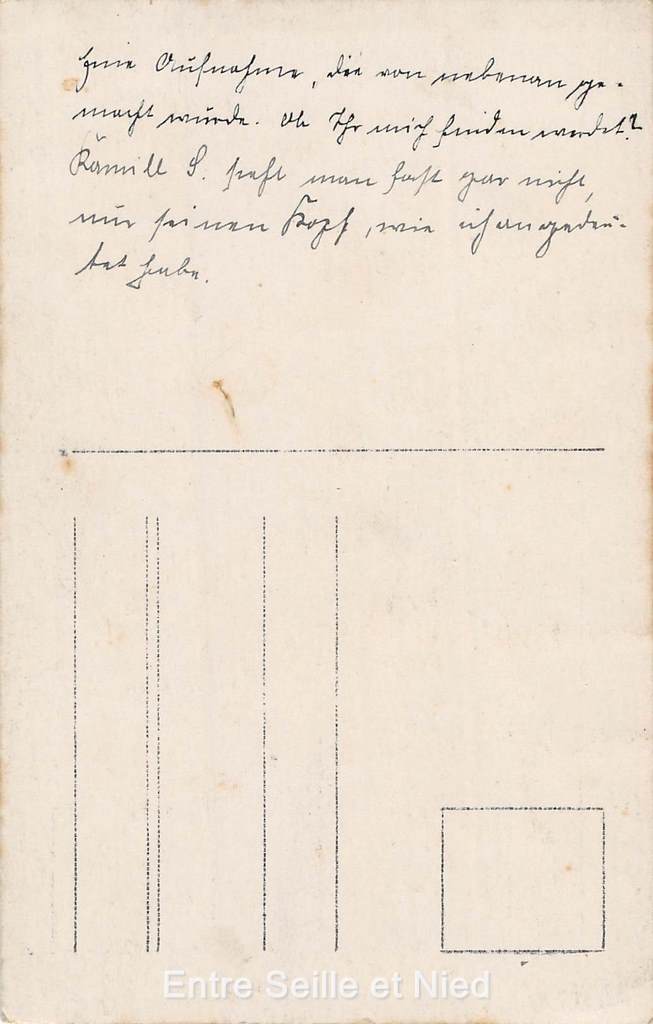 Eine Aufnahme, die von nebenan ge-
macht wurde. Ob Ihr mich finden werdet?
Kamill S. sieht man fast gar nicht,
nur seinen Kopf, wie ich angedeu-
tet habe.
Entre Seille et Nied